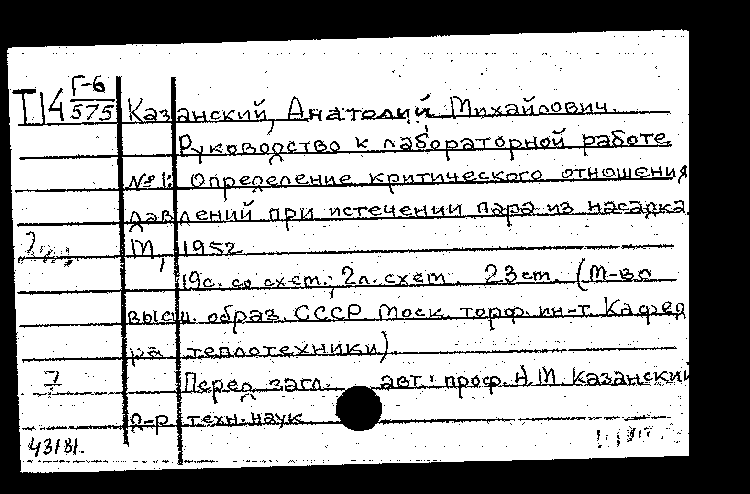 Г-6
Т14 575 Казанский, Анатолий Михайлович.
Руководство к лабораторной работе
№ 1: Определение критического отношения
давлений при истечении пара из насадка
М, 1952
19с. со схем.; 2л. схем. 23 см. (М-во
высш. образ. СССР Моск. торф. ин-т. Кафед
ра теплотехники).
7 Перед загл. авт: проф. А.М. Казанский
д-р техн. наук
43181.